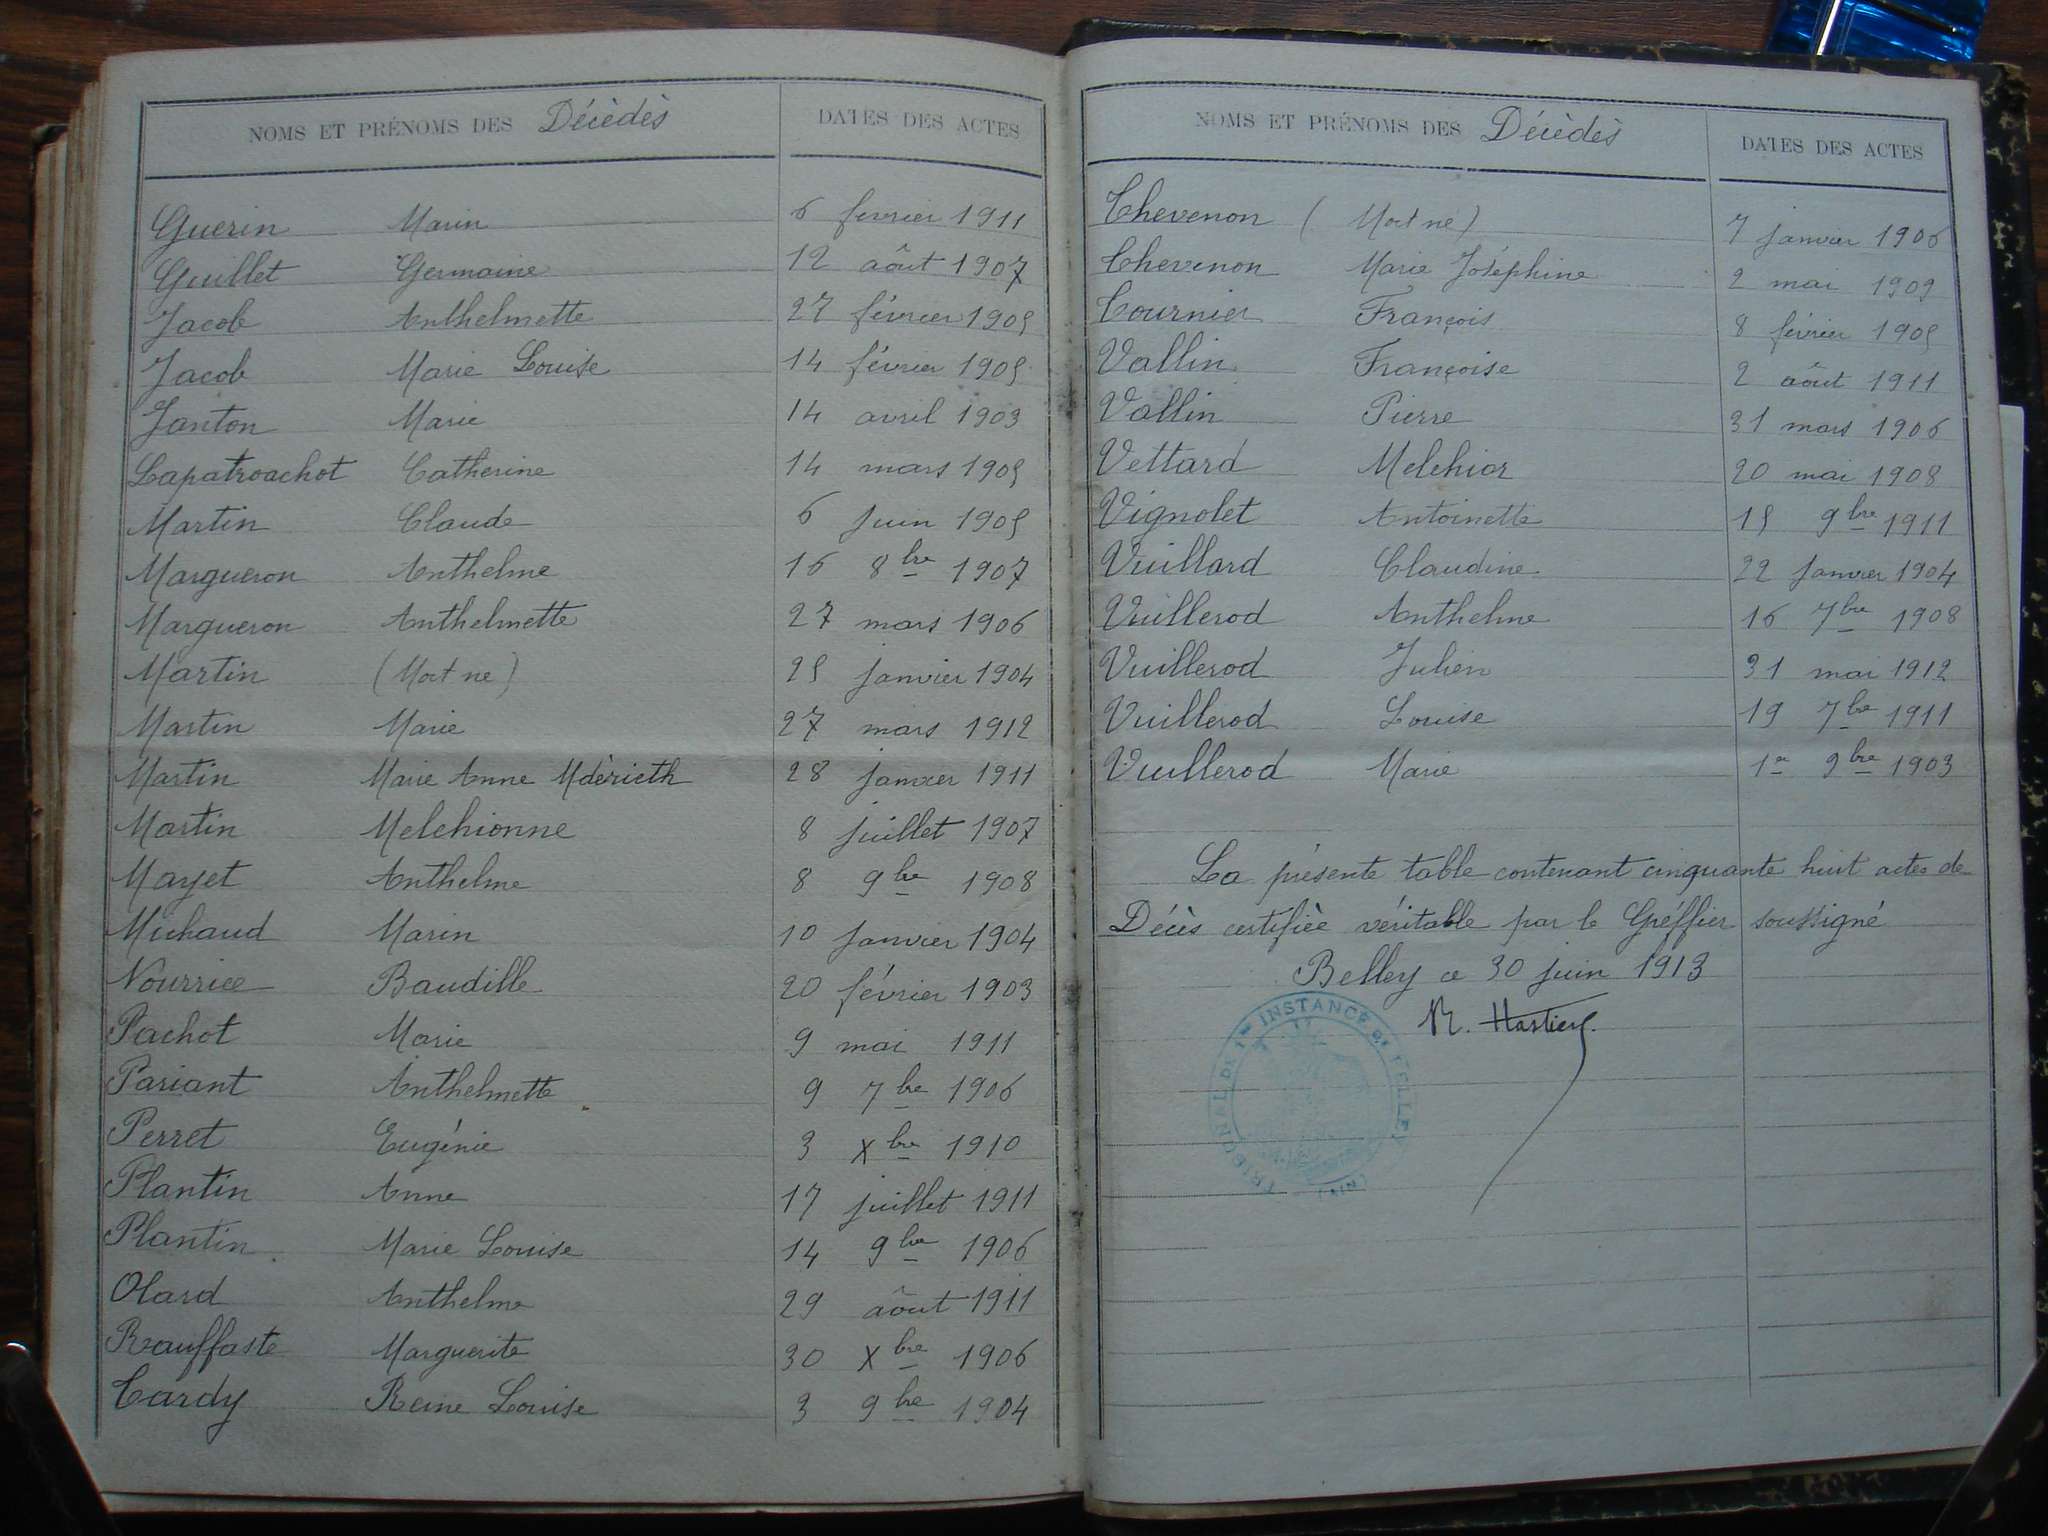 NOMS ET PRÉNOMS DES Décèdès DATES DES ACTES
Guerin Marin 6 fevrier 1911
Guillet Germaine 12 aôut 1907
Jacob Anthelmette 27 février 1905
Jacob Marie Louise 14 février 1905
Janton Marie 14 avril 1903
Lapatroachot Catherine 14 mars 1905
Martin Claude 6 juin 1905
Margueron Anthelme 16 8bre 1907
Margueron Anthelmette 27 mars 1906
Martin (Mort né) 25 janvier 1904
Martin Marie 27 mars 1912
Martin Marie Anne 28 janvier 1911
Martin Melchionne 8 juillet 1907
Mayet Anthelme 8 9bre 1908
Michaud Marin 10 janvier 1904
Nourrice Baudille 20 février 1903
Pachot Marie 9 mai 1911
Pariant Anthelmette 9 7bre 1906
Perret Eugénie 3 Xbre 1910
Plantin Anne 17 juillet 1911
Plantin Marie Louise 14 9bre 1906
Olard Anthelme 29 aôut 1911
Rauffaste Marguerite 30 Xbre 1906
Tardy Reine Louise 3 9bre 1904
NOMS ET PRÉNOMS DES Décèdès DATES DES ACTES
Thevenon (Mort né) 7 janvier 1906
Thevenon Marie Joséphine 2 mai 1909
Tournier François 8 février 1905
Vallin Françoise 2 aôut 1911
Vallin Pierre 31 mars 1906
Vettard Melchior 20 mai 1908
Vignolet Antoinette 15 9bre 1911
Vuillard Claudine 22 janvier 1904
Vuillerod Anthelme 16 7bre 1908
Vuillerod Julien 31 mai 1912
Vuillerod Louise 19 7bre 1911
Vuillerod Marie 1er 9bre 1903
La présente table contenant cinquante huit actes de
Décès certifièe véritable par le Gréffier soussigné
Belley ce 30 juin 1913
TRIBUNAL DE 1re INSTANCE DE BELLEY (AIN)